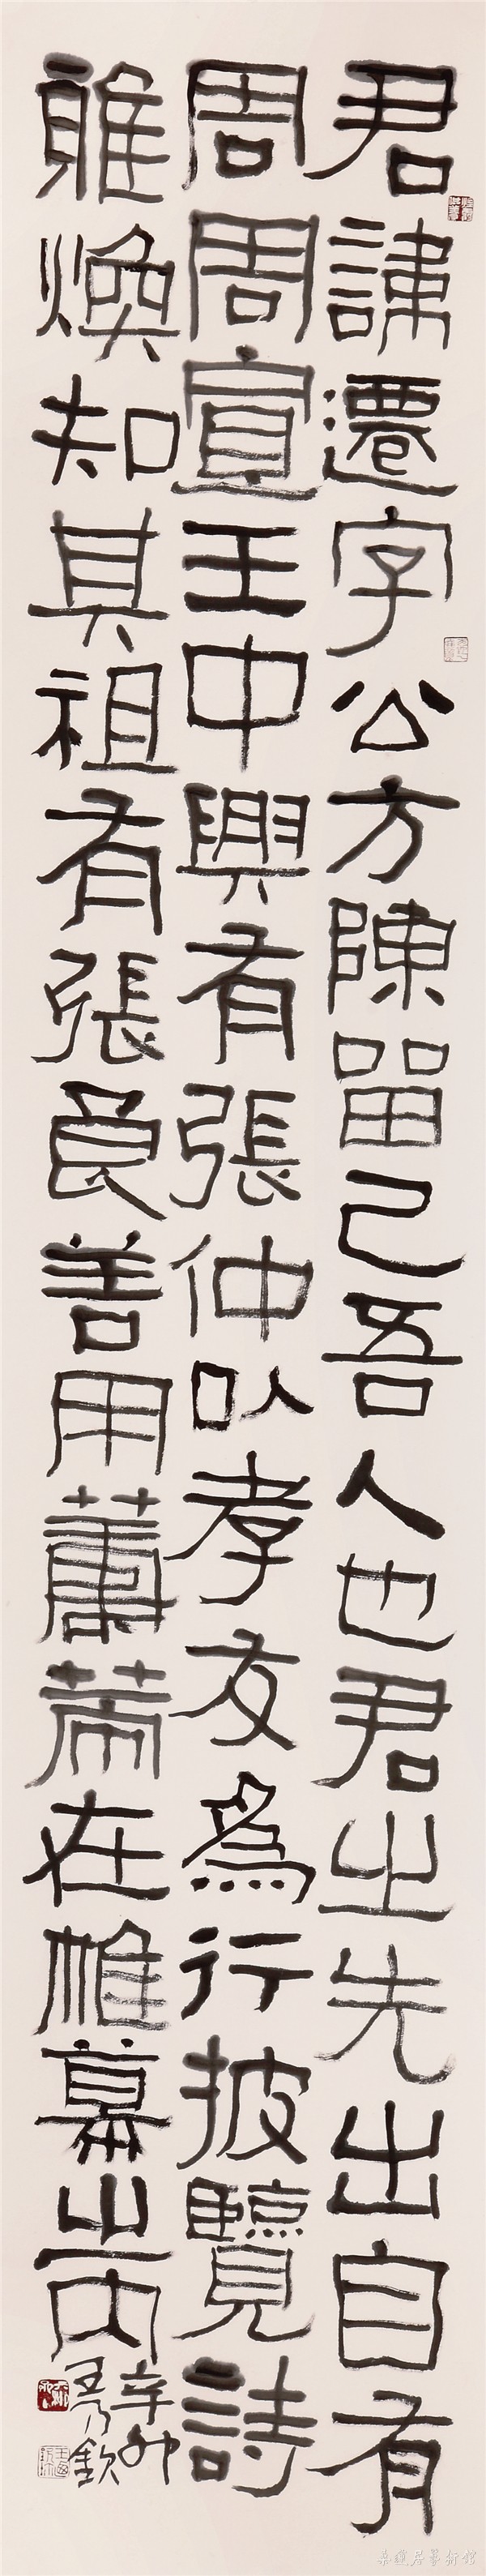 君諱遷字公方陳留己吾人也君之先出自有
周周宣王中興有張仲以孝友爲行披覽詩
雅煥知其祖有張良善用籌策在帷幕之內
辛卯
王乃欽
桑蓮居藝術館